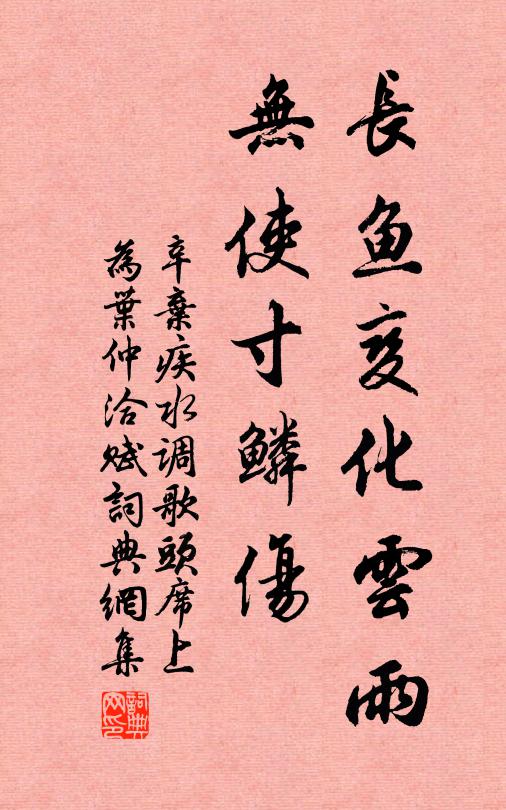 長魚变化雲雨
無使寸鱗傷
辛棄疾水调歌頭席上
為葉仲洽赋詞典網集
詞典网印